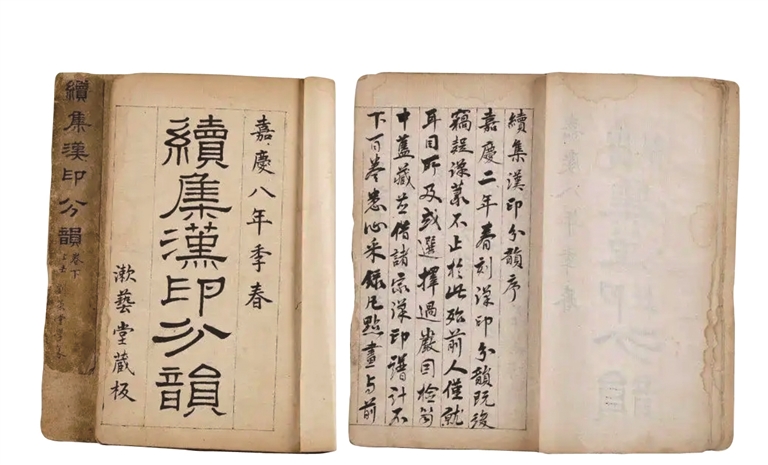 續集漢印分韻
卷下
嘉慶八年季春
續集漢印分韻
漱藝堂藏板
續集漢印分韻序
嘉慶二年春刻漢印分韻既後
竊疑漢篆不止於此殆前人僅就
耳目所及或選擇過嚴因檢笥
中舊藏並借諸家漢印譜計不
下百卷悉心采錄凡點畫與前